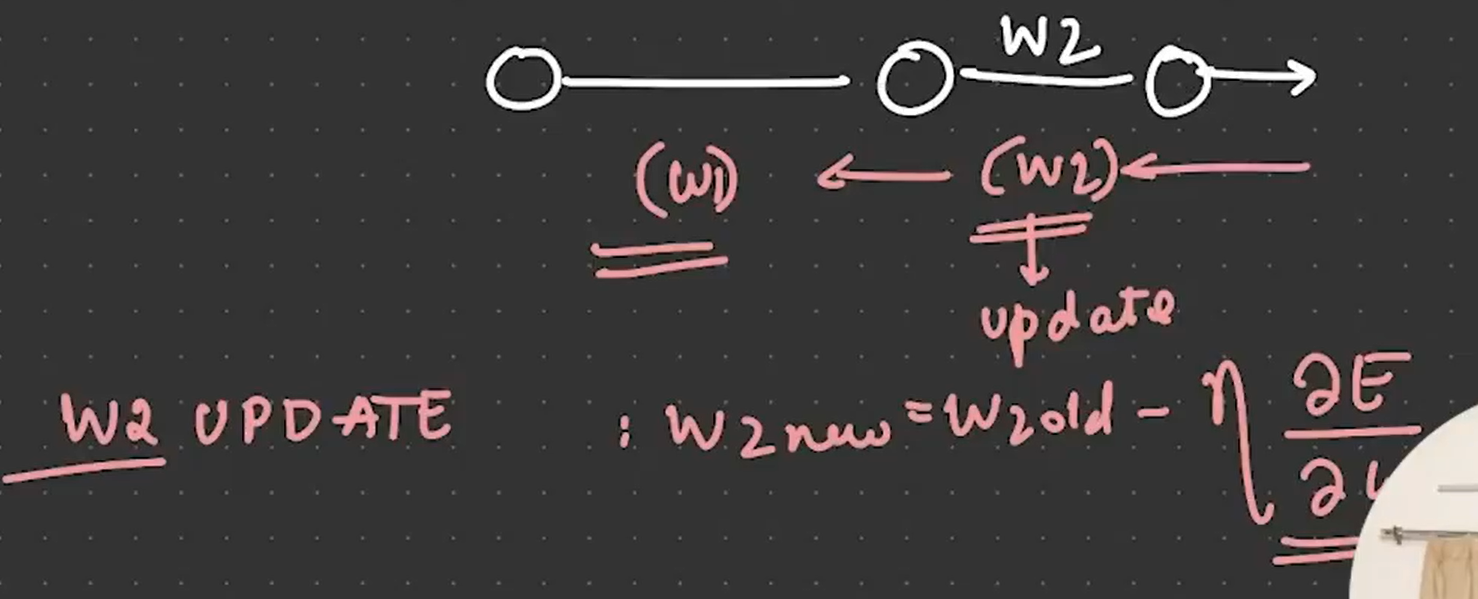 W2
(W1) ← (W2) ←
update
W2 UPDATE : W2new = W2old - η ∂E
∂